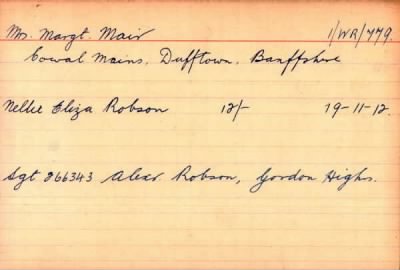 Mrs. Margt. Mair 1/WR/779
Cowal Mains, Dufftown, Banffshire
Nellie Eliza Robson 12/- 19-11-12.
Sgt 266343 Alexr. Robson, Gordon Highs.